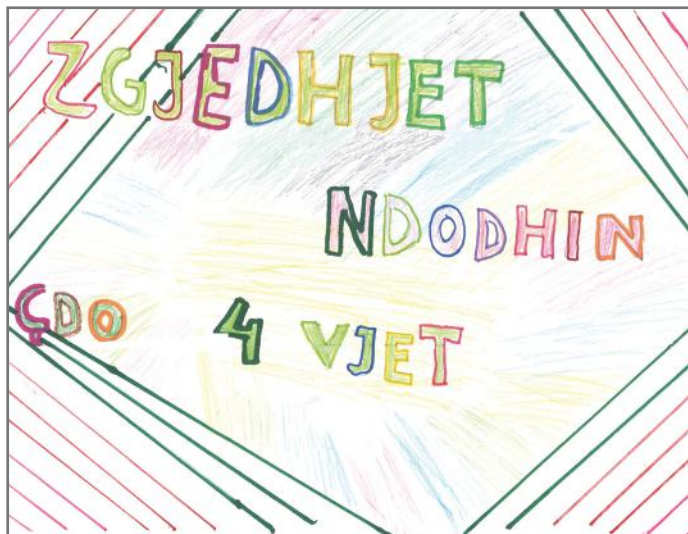 ZGJEDHJET
NDODHIN
ÇDO 4 VJET